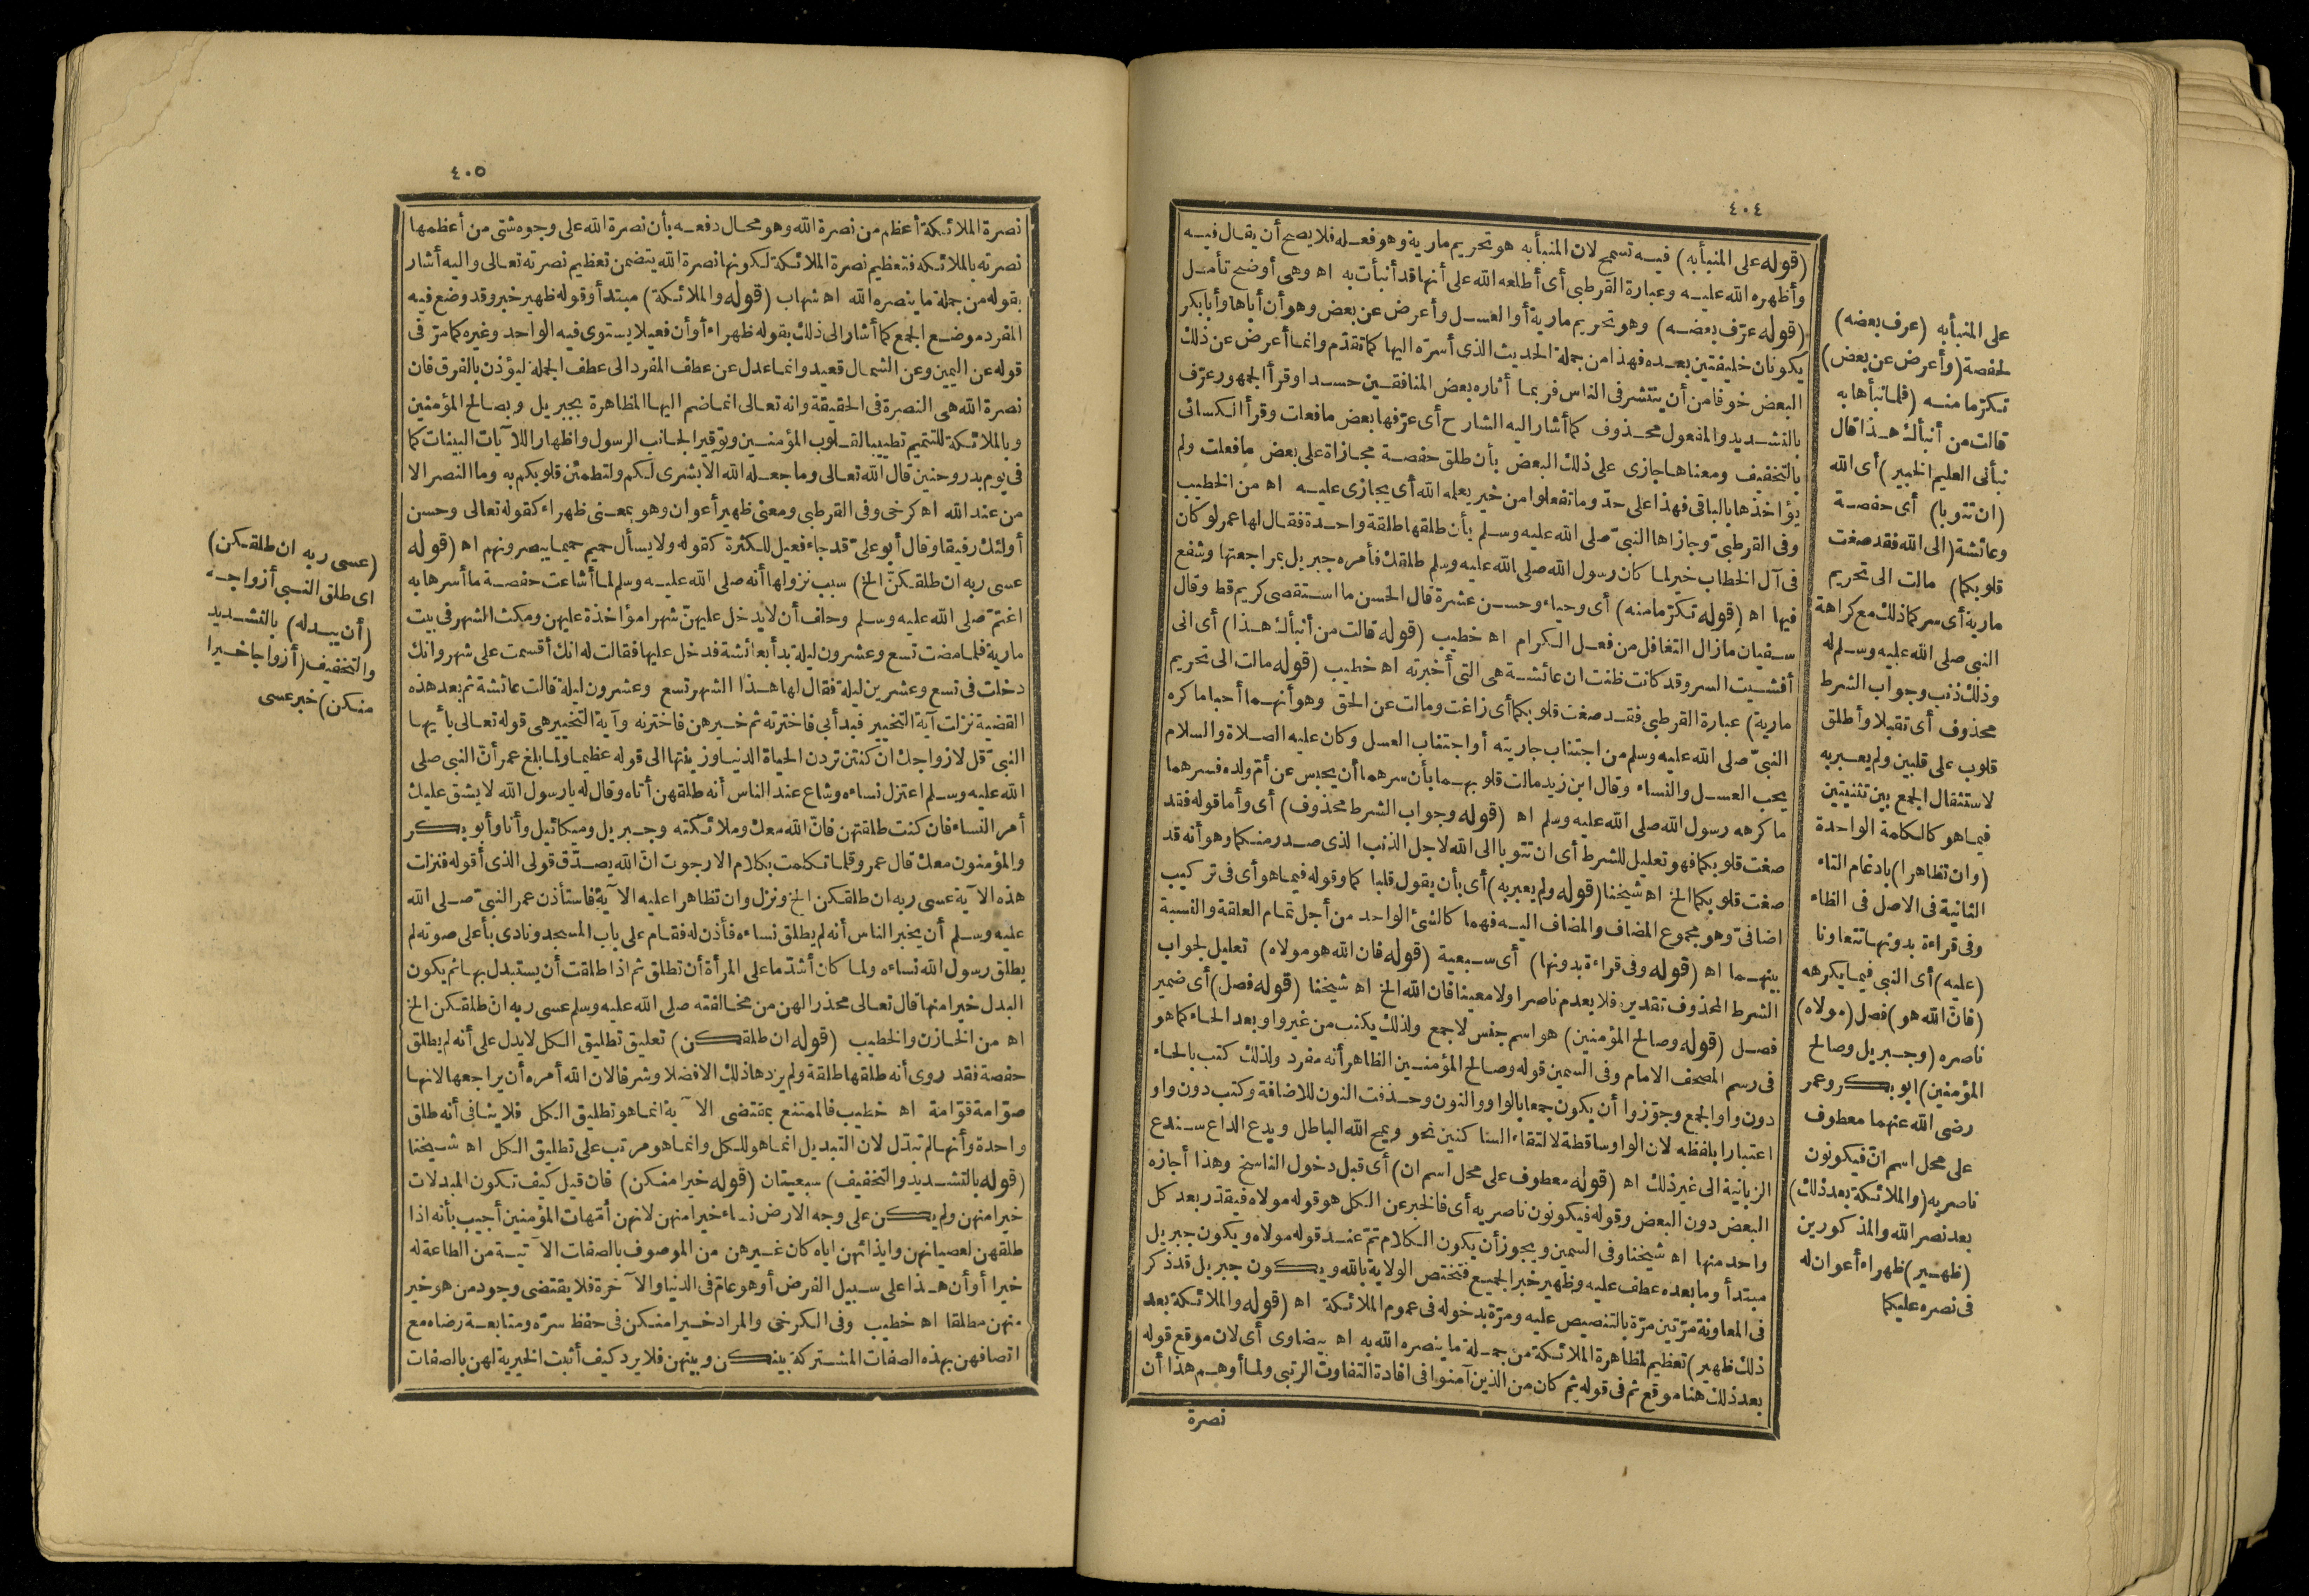 ٤٠٤
(قوله على المنبأبه) فيه تسمح لان المنبأ به هو تحريم مارية وهو فعله فلا يصح أن يقال فيه
وأظهره الله عليه وعبارة القرطبى أى أطلعه الله على أنها قد أنبأت به اه وهى أوضح تأمل
(قوله عرّف بعضه) وهو تحريم مارية أو العسل وأعرض عن بعض وهو أن أباها وأبا بكر
يكونان خليفتين بعده فهذا من جملة الحديث الذى أسرّه اليها كما تقدّم وانما أعرض عن ذلك
البعض خوفا من أن ينتشر فى الناس فربما أثاره بعض المنافقين حسدا وقرأ الجمهور عرّف
بالتشديد والمفعول محذوف كما أشار اليه الشارح أى عرّفها بعض ما فعلت وقرأ الكسائى
بالتخفيف ومعناها جازى على ذلك البعض بأن طلق حفصة مجازاة على بعض ما فعلت ولم
يؤاخذها بالباقى فهذا على حدّ وما تفعلوا من خير يعلمه الله أى يجازى عليه اه من الخطيب
وفى القرطبىّ وجازاها النبىّ صلى الله عليه وسلم بأن طلقها طلقة واحدة فقال لها عمر لو كان
فى آل الخطاب خير لما كان رسول الله صلى الله عليه وسلم طلقك فأمره جبريل بمراجعتها وشفع
فيها اه (قوله تكرّما منه) أى وحياء وحسن عشرة قال الحسن ما استقصى كريم قط وقال
سفيان مازال التغافل من فعل الكرام اه خطيب (قوله قالت من أنبأك هذا) أى انى
أفشيت السر وقد كانت ظنت ان عائشة هى التى أخبرته اه خطيب (قوله مالت الى تحريم
مارية) عبارة القرطبى فقد صغت قلوبكما أى زاغت ومالت عن الحق وهو أنهما أحبا ما كره
النبىّ صلى الله عليه وسلم من اجتناب جاريته أو اجتناب العسل وكان عليه الصلاة والسلام
يحب العسل والنساء وقال ابن زيد مالت قلوبهما بأن سرهما أن يحبس عن أمّ ولده فسرهما
ما كرهه رسول الله صلى الله عليه وسلم اه (قوله وجواب الشرط محذوف) أى وأما قوله فقد
صغت قلوبكما فهو تعليل للشرط أى ان تتوبا الى الله لاجل الذنب الذى صدر منكما وهو أنه قد
صغت قلوبكما الخ اه شيخنا (قوله ولم يعبر به) أى بأن يقول قلبا كما وقوله فيما هو أى فى تركيب
اضافىّ وهو مجموع المضاف والمضاف اليه فهما كالشئ الواحد من أجل تمام العلقة والنسبة
بينهما اه (قوله وفى قراءة بدونها) أى سبعية (قوله فان الله هو مولاه) تعليل لجواب
الشرط المحذوف تقديره فلا يعدم ناصرا ولا معينا فان الله الخ اه شيخنا (قوله فصل) أى ضمير
فصل (قوله وصالح المؤمنين) هو اسم جنس لا جمع ولذلك يكتب من غير واو بعد الحاء كما هو
فى رسم المصحف الامام وفى السمين قوله وصالح المؤمنين الظاهر أنه مفرد ولذلك كتب بالحاء
دون واو الجمع وجوّزوا أن يكون جمعا بالواو والنون وحذفت النون للاضافة وكتب دون واو
اعتبارا بلفظه لان الواو ساقطة لالتقاء الساكنين نحو ويمح الله الباطل ويدع الداع سندع
الزبانية الى غير ذلك اه (قوله معطوف على محل اسم ان) أى قبل دخول الناسخ وهذا أجازه
البعض دون البعض وقوله فيكونون ناصريه أى فالخبر عن الكل هو قوله مولاه فيقدّر بعد كل
واحد منها اه شيخنا وفى السمين ويجوز أن يكون الكلام تمّ عند قوله مولاه ويكون جبريل
مبتدأ وما بعده عطف عليه وظهير خبر الجميع فتختص الولاية بالله ويكون جبريل قد ذكر
فى المعاونة مرّتين مرّة بالتنصيص عليه ومرّة بدخوله فى عموم الملائكة اه (قوله والملائكة بعد
ذلك ظهير) تعظيم لمظاهرة الملائكة من جملة ما ينصره الله به اه بيضاوى أى لان موقع قوله
بعد ذلك هنا موقع ثم فى قوله ثم كان من الذين آمنوا فى افادة التفاوت الرتبى ولما أوهم هذا أن
نصرة
على المنبأبه (عرف بعضه)
لحفصة (وأعرض عن بعض)
تكرّما منه (فلما نبأها به
قالت من أنبأك هذا قال
نبأنى العليم الخبير) أى الله
(ان تتوبا) أى حفصة
وعائشة (الى الله فقد صغت
قلوبكما) مالت الى تحريم
مارية أى سركما ذلك مع كراهة
النبى صلى الله عليه وسلم له
وذلك ذنب وجواب الشرط
محذوف أى تقبلا وأطلق
قلوب على قلبين ولم يعبر به
لاستثقال الجمع بين تثنيتين
فيما هو كالكلمة الواحدة
(وان تظاهرا) بادغام التاء
الثانية فى الاصل فى الظاء
وفى قراءة بدونها تتعاونا
(عليه) أى النبى فيما يكرهه
(فانّ الله هو) فصل (مولاه)
ناصره (وجبريل وصالح
المؤمنين) ابو بكر وعمر
رضى الله عنهما معطوف
على محل اسم انّ فيكونون
ناصريه (والملائكة بعد ذلك)
بعد نصر الله والمذكورين
(ظهير) ظهراء أعوان له
فى نصره عليكما
٤٠٥
نصرة الملائكة أعظم من نصرة الله وهو محال دفعه بأن نصرة الله على وجوه شتى من أعظمها
نصرته بالملائكه فتعظيم نصرة الملائكة لكونها نصرة الله يتضمن تعظيم نصرته تعالى واليه أشار
بقوله من جملة ما ينصره الله اه شهاب (قوله والملائكة) مبتدأ وقوله ظهير خبر وقد وضع فيه
المفرد موضع الجمع كما أشار الى ذلك بقوله ظهراء أو أن فعيلا يستوى فيه الواحد وغيره كما مرّ فى
قوله عن اليمين وعن الشمال قعيد وانما عدل عن عطف المفرد الى عطف الجملة ليؤذن بالفرق فان
نصرة الله هى النصرة فى الحقيقة وانه تعالى انما ضم اليها المظاهرة بجبريل وبصالح المؤمنين
وبالملائكة للتتميم تطييبا لقلوب المؤمنين وتوقيرا لجانب الرسول واظهارا للآيات البينات كما
فى يوم بدر وحنين قال الله تعالى وما جعله الله الا بشرى لكم ولتطمئن قلوبكم به وما النصر الا
من عند الله اه كرخى وفى القرطبى ومعنى ظهير أعوان وهو بمعنى ظهراء كقوله تعالى وحسن
أولئك رفيقا وقال أبو علىّ قد جاء فعيل للكثرة كقوله ولا يسأل حميم حميما يبصرونهم اه (قوله
عسى ربه ان طلقكنّ الخ) سبب نزولها أنه صلى الله عليه وسلم لما أشاعت حفصة ما أسرها به
اغتمّ صلى الله عليه وسلم وحلف أن لا يدخل عليهنّ شهرا مؤاخذة عليهن ومكث الشهر فى بيت
مارية فلما مضت تسع وعشرون ليلة بدأ بعائشة فدخل عليها فقالت له انك أقسمت على شهر وانك
دخلت فى تسع وعشرين ليلة فقال لها هذا الشهر تسع وعشرون ليلة قالت عائشة ثم بعد هذه
القضية نزلت آية التخيير فبدأ بى فاخترته ثم خيرهن فاخترنه وآية التخيير هى قوله تعالى يا أيها
النبىّ قل لازواجك ان كنتن تردن الحياة الدنيا وزينتها الى قوله عظيما ولما بلغ عمر أنّ النبى صلى
الله عليه وسلم اعتزل نساءه وشاع عند الناس أنه طلقهن أتاه وقال له يا رسول الله لا يشق عليك
أمر النساء فان كنت طلقتهن فانّ الله معك وملائكته وجبريل وميكائيل وأنا وأبو بكر
والمؤمنون معك قال عمر وقلما تكلمت بكلام الا رجوت انّ الله يصدّق قولى الذى أقوله فنزلت
هذه الآية عسى ربه ان طلقكن الخ ونزل وان تظاهرا عليه الآية فاستأذن عمر النبىّ صلى الله
عليه وسلم أن يخبر الناس أنه لم يطلق نساءه فأذن له فقام على باب المسجد ونادى بأعلى صوته لم
يطلق رسول الله نساءه ولما كان أشدّ ما على المرأة أن تطلق ثم اذا طلقت أن يستبدل بها ثم يكون
البدل خيرا منها قال تعالى محذرا لهن من مخالفته صلى الله عليه وسلم عسى ربه ان طلقكن الخ
اه من الخازن والخطيب (قوله ان طلقكن) تعليق تطليق الكل لا يدل على أنه لم يطلق
حفصة فقد روى أنه طلقها طلقة ولم يزدها ذلك الا فضلا وشرفا لان الله أمره أن يراجعها لانها
صوّامة قوّامة اه خطيب فالممتنع بمقتضى الآية انما هو تطليق الكل فلا ينافى أنه طلق
واحدة وأنها لم تبدّل لان التبديل انما هو للكل وانما هو مرتب على تطليق الكل اه شيخنا
(قوله بالتشديد والتخفيف) سبعيتان (قوله خيرا منكن) فان قيل كيف تكون المبدلات
خيرا منهن ولم يكن على وجه الارض نساء خيرا منهن لانهن أمّهات المؤمنين أجيب بأنه اذا
طلقهن لعصيانهن وايذائهن اياه كان غيرهن من الموصوف بالصفات الآتية من الطاعة له
خيرا أو أن هذا على سبيل الفرض أو هو عامّ فى الدنيا والآخرة فلا يقتضى وجود من هو خير
منهن مطلقا اه خطيب وفى الكرخى والمراد خيرا منكن فى حفظ سرّه ومتابعة رضاه مع
اتصافهن بهذه الصفات المشتركة بينكن وبينهن فلا يرد كيف أثبت الخيرية لهن بالصفات
(عسى ربه ان طلقكن)
اى طلق النبى أزواجه
(أن يبدله) بالتشديد
والتخفيف (أزواجا خيرا
منكن) خبر عسى